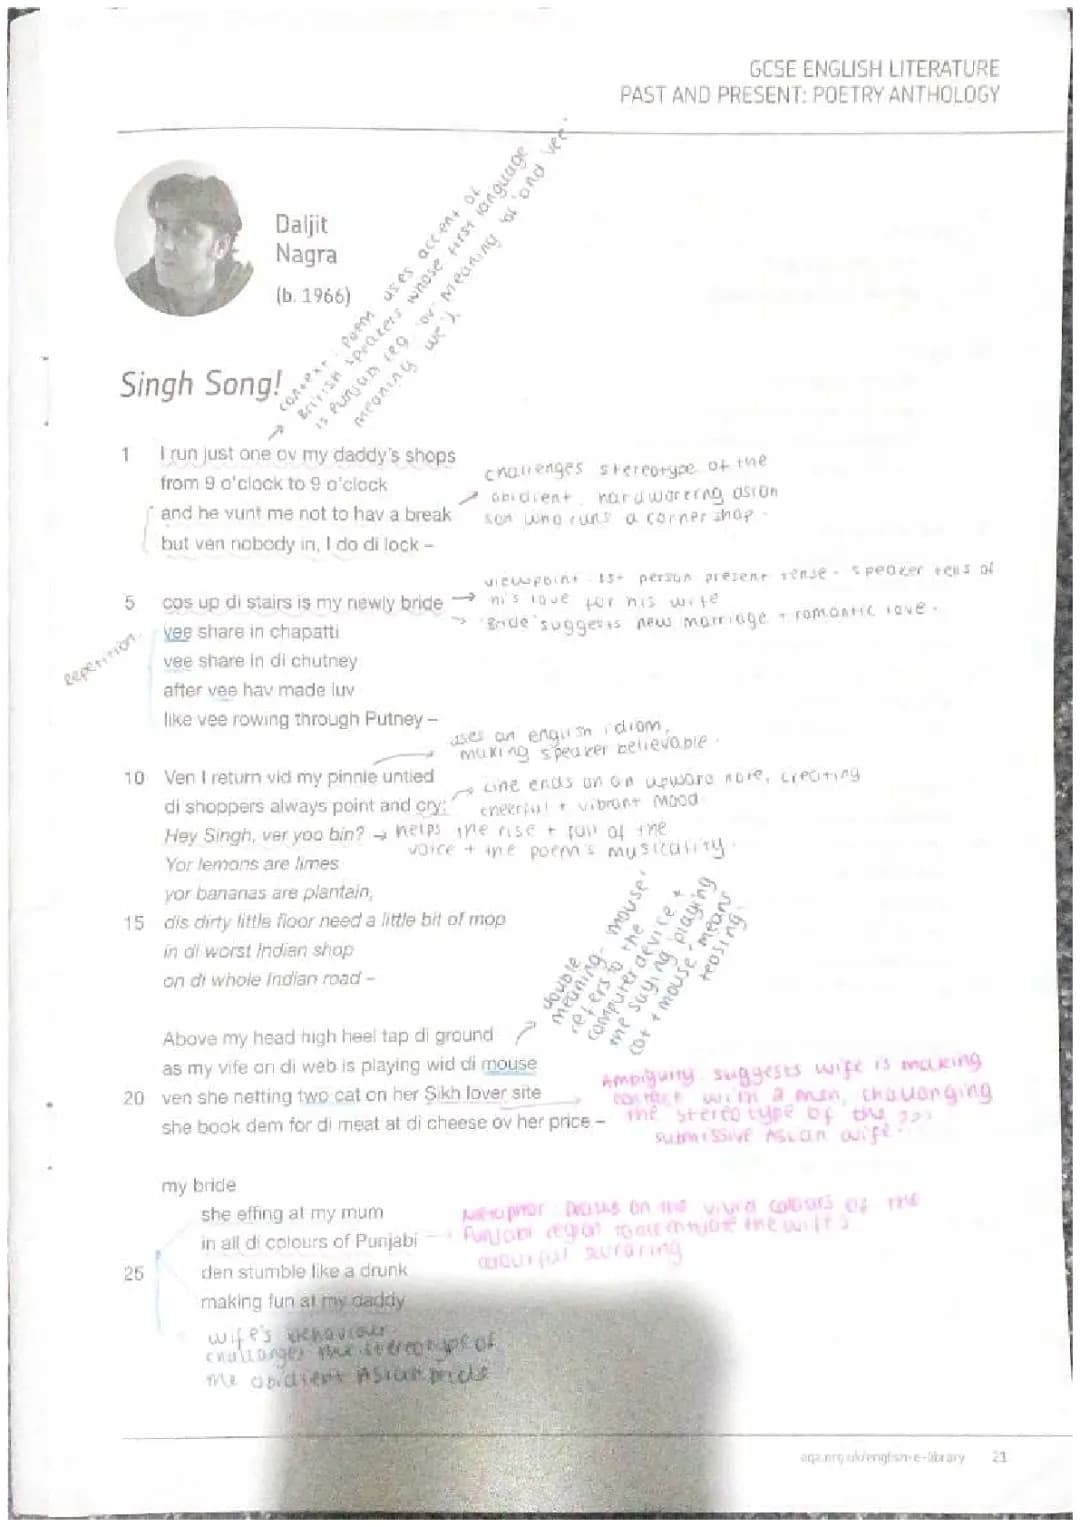 GCSE ENGLISH LITERATURE
PAST AND PRESENT: POETRY ANTHOLOGY
Daljit
Nagra
(b. 1966)
context - Poem uses accent of
British speakers whose first language
is Punjabi (eg 'ov' meaning 'of' and 'vee'
meaning 'we').
Singh Song!
1 I run just one ov my daddy's shops
from 9 o'clock to 9 o'clock
and he vunt me not to hav a break
but ven nobody in, I do di lock –
challenges stereotype of the
obidient, hard working asian
son who runs a corner shop.
viewpoint - 1st person present tense - speaker tells of
his love for his wife
'Bride' suggests new marriage + romantic love.
5 cos up di stairs is my newly bride
vee share in chapatti
vee share in di chutney
after vee hav made luv
like vee rowing through Putney –
Repetition.
uses an english idiom,
making speaker believable.
10 Ven I return vid my pinnie untied
di shoppers always point and cry:
Hey Singh, ver yoo bin?
Yor lemons are limes
yor bananas are plantain,
15 dis dirty little floor need a little bit of mop
in di worst Indian shop
on di whole Indian road –
Line ends on an upward note, creating
cheerful + vibrant mood.
helps the rise + fall of the
voice + the poem's musicality.
double
meaning - 'mouse'
refers to the
computer device +
the saying 'playing
cat + mouse' means
teasing.
Above my head high heel tap di ground
as my vife on di web is playing wid di mouse
20 ven she netting two cat on her Sikh lover site
she book dem for di meat at di cheese ov her price –
Ambiguity. suggests wife is making
contact with 2 men, challanging
the stereotype of the
submissive Asian wife.
my bride
she effing at my mum
in all di colours of Punjabi
25 den stumble like a drunk
making fun at my daddy
Metaphor on the vivid colours of the
Punjabi region the wife's
colourful swearing
wife's behaviour
challanges the stereotype of
the obidient Asian bride
aqa.org.uk/english-e-library 21